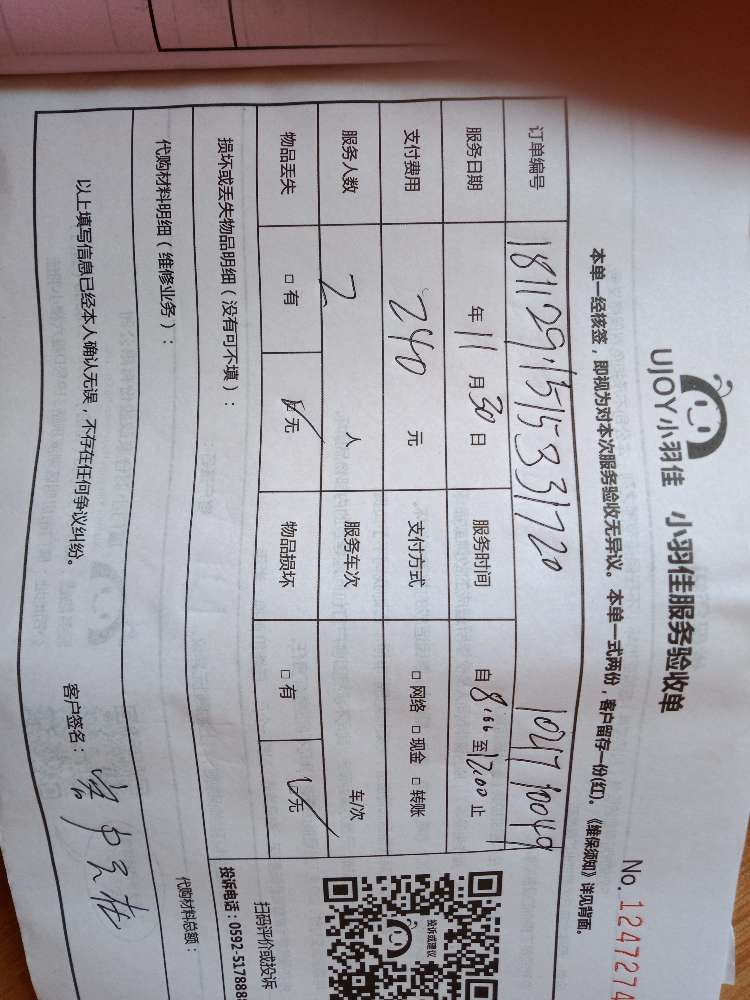 UJOY小羽佳 小羽佳服务验收单
No. 1247274
本单一经核签，即视为对本次服务验收无异议。本单一式两份，客户留存一份(红)。《维保须知》详见背面。
订单编号 1811291515331720
服务日期 年 11 月 30 日 服务时间 自 至 12:00 止
支付费用 240 元 支付方式 □ 网络 □ 现金 □ 转账
服务人数 2 人 服务车次 车/次
物品丢失 □ 有 ☑ 无 物品损坏 □ 有 ☑ 无
投诉或建议
扫码评价或投诉
投诉电话：0592-517888
损坏或丢失物品明细（没有可不填）：
代购材料明细（维修业务）：
代购材料总额：
以上填写信息已经本人确认无误，不存在任何争议纠纷。 客户签名：